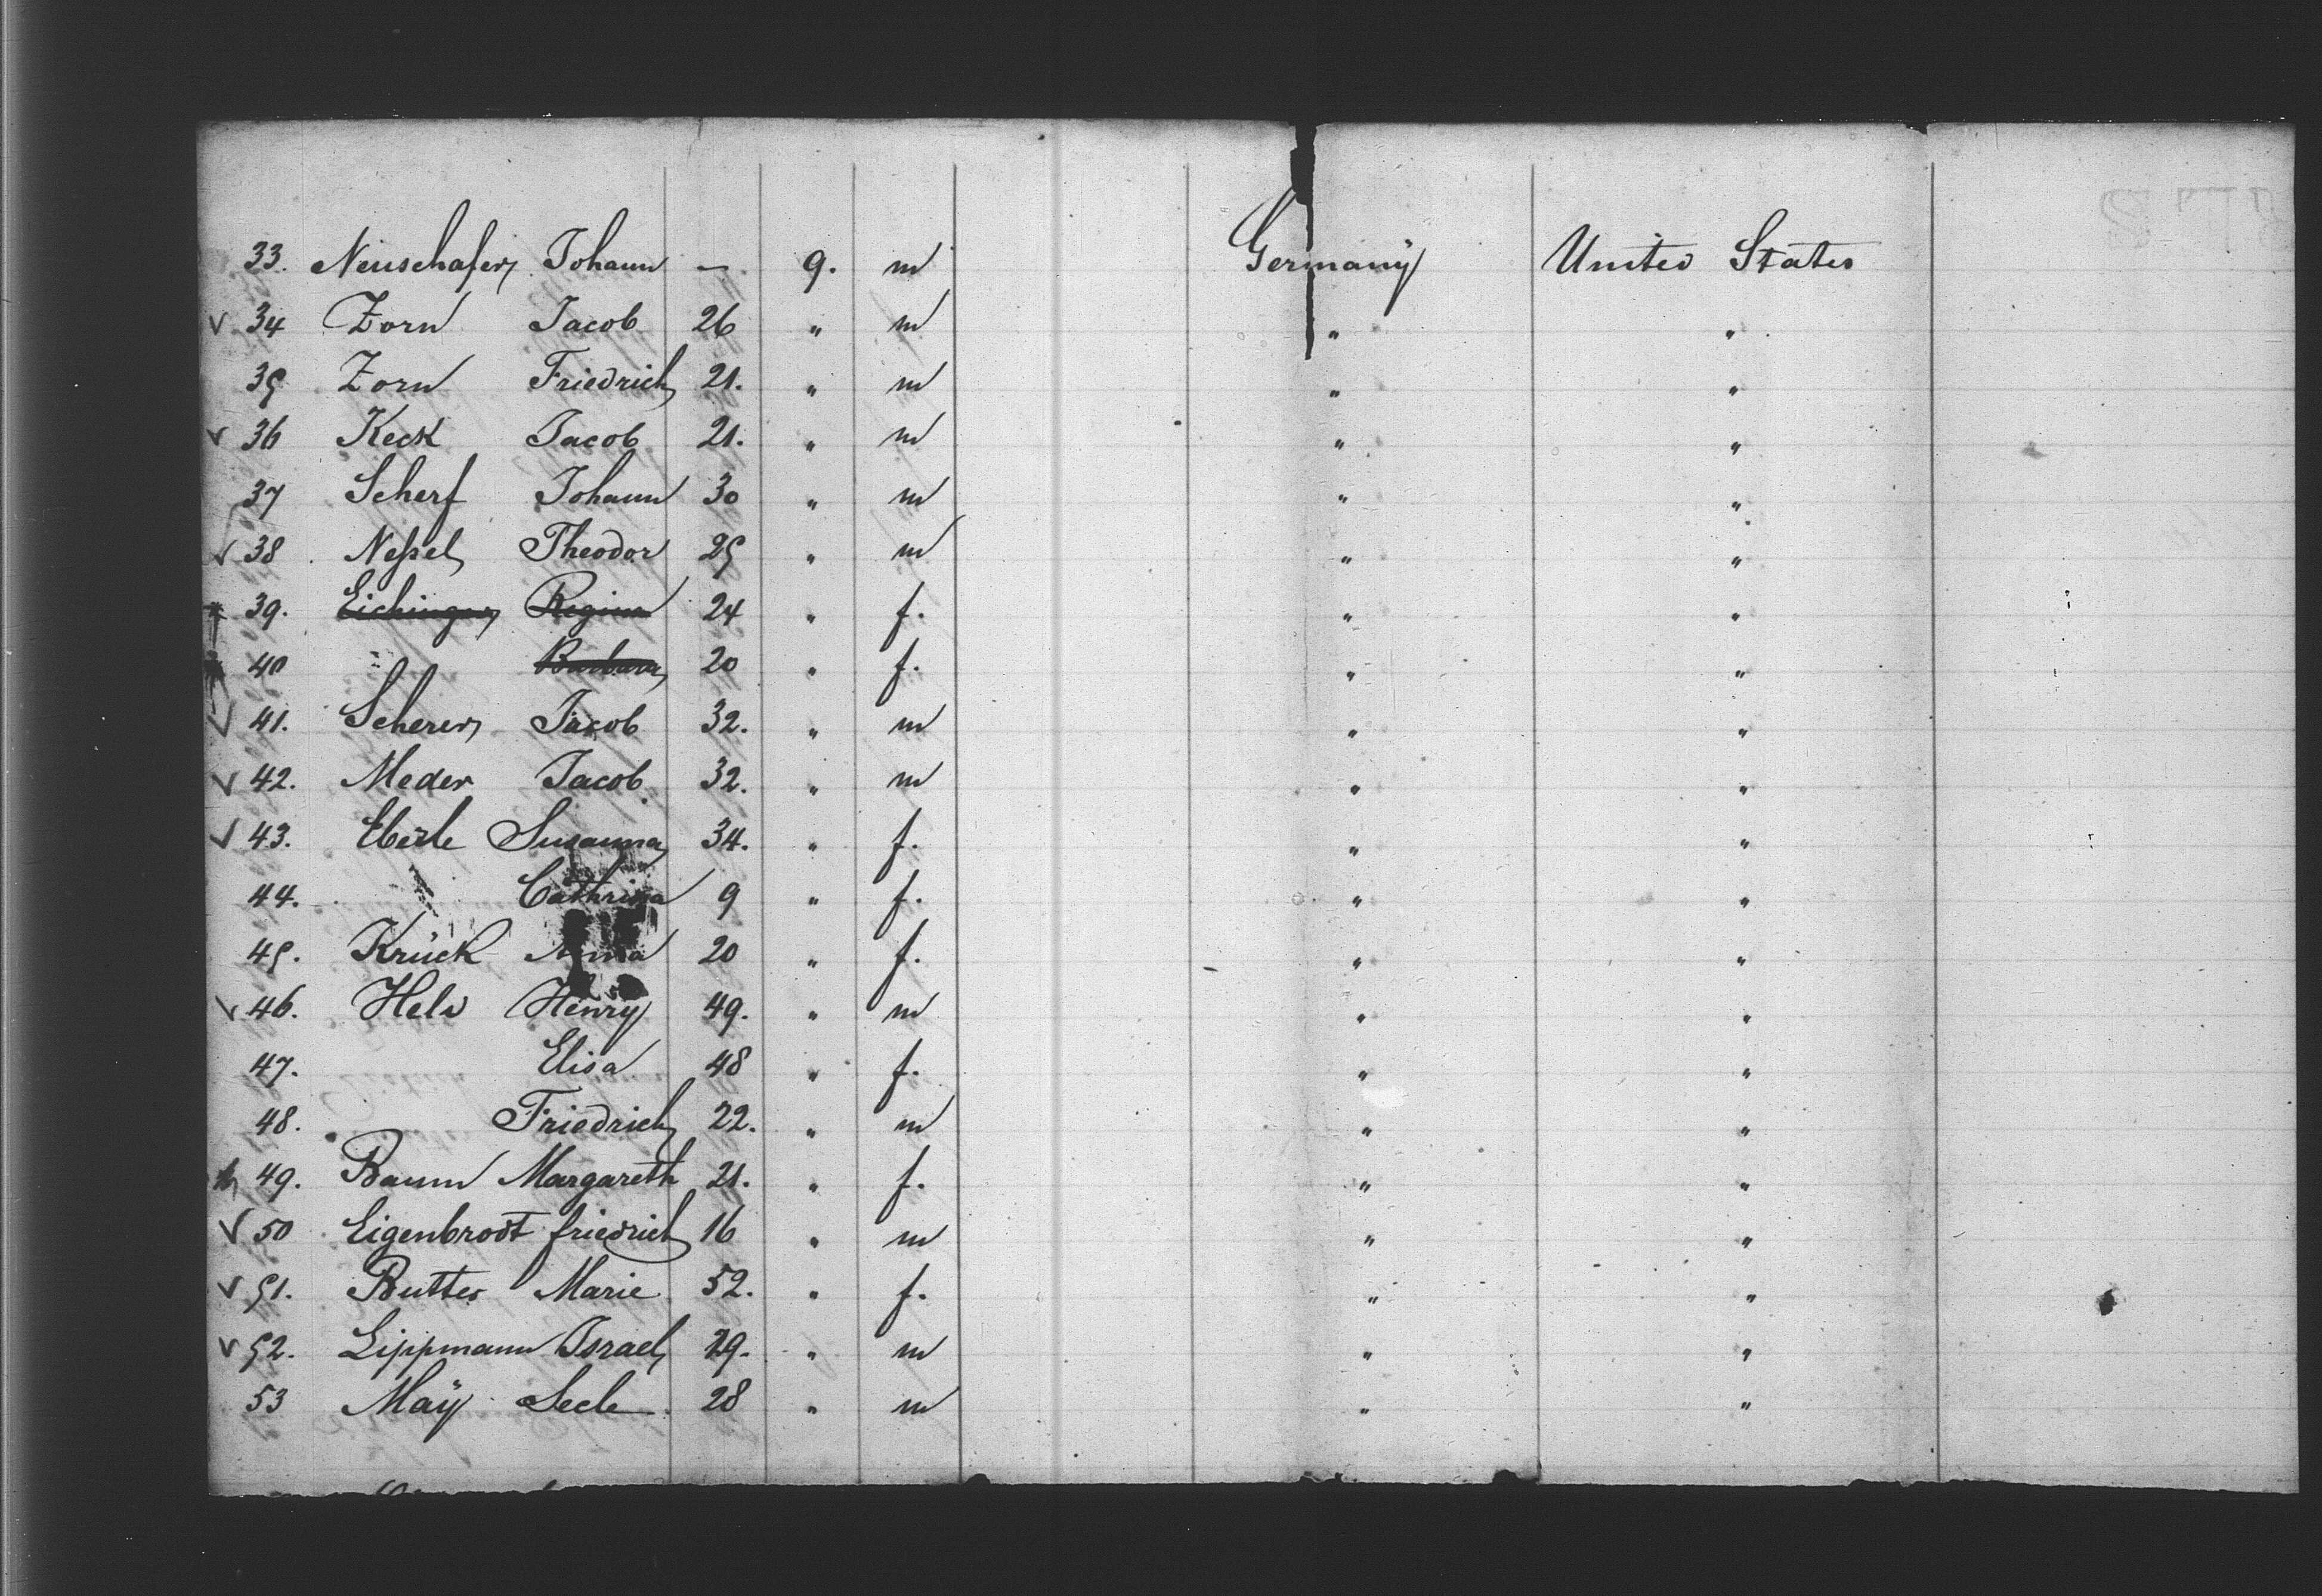 33. Neuschafer Johann — 9. m Germany United States
34 Zorn Jacob 26 " m " "
35 Zorn Friedrich 21. " m " "
36 Keck Jacob 21. " m " "
37 Scherf Johann 30 " m " "
38 Neßel Theodor 25 " m " "
39. Eichinger Regina 24 " f. " "
40 " Barbara 20 " f. " "
41. Scherer Jacob 32. " m " "
42. Meder Jacob 32. " m " "
43. Eberle Susanna 34. " f. " "
44. Cathrina 9 " f. " "
45. Krück Anna 20 " f. " "
46. Held Henry 49. " m " "
47. Elisa 48 " f. " "
48. Friedrich 22. " m " "
49. Baum Margareth 21. " f. " "
50 Eigenbrodt friedrich 16 " m " "
51. Buttes Marie 52. " f. " "
52. Lippmann Israel 29. " m " "
53 Maÿ Secle 28 " m " "